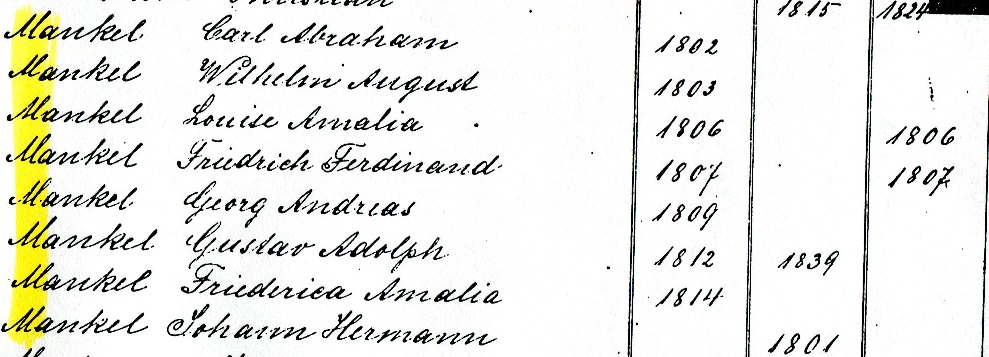 1815 1824
Mankel Carl Abraham 1802
Mankel Wilhelm August 1803
Mankel Louise Amalia 1806 1806
Mankel Friedrich Ferdinand 1807 1807
Mankel Georg Andreas 1809
Mankel Gustav Adolph 1812 1839
Mankel Friederica Amalia 1814
Mankel Johann Hermann 1801